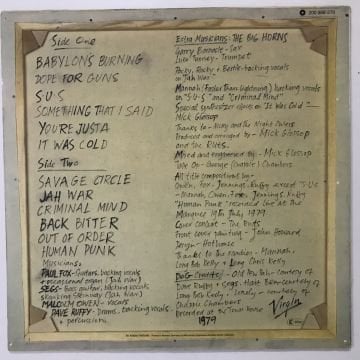 Side One
BABYLON'S BURNING
DOPE FOR GUNS
S·U·S
SOMETHING THAT I SAID
YOU'RE JUSTA
IT WAS COLD
Side Two
SAVAGE CIRCLE
JAH WAR
CRIMINAL MIND
BACK BITER
OUT OF ORDER
HUMAN PUNK
Musicians.
PAUL FOX - Guitars, backing vocals
+ occasional organ (Jah War)
SEGS - Bass guitar, backing vocals
Skanking Steinway (Jah War)
MALCOLM OWEN - vocals
DAVE RUFFY - Drums, backing vocals
+ percussion.
Extra Musicians: THE BIG HORNS
Gary Barnacle - Sax
Luke Tunney - Trumpet
Rocky, Rocky + Bertie - backing vocals
on "Jah War"
Mannah (Faster than lightning) backing vocals
on "S·U·S" and "Criminal Mind"
Special synthesizer effects on It Was Cold -
Mick Glossop
Thanks to - Nicky and the Night Movers
Produced and arranged by - Mick Glossop
and the Ruts.
Mixed and engineered by - Mick Glossop
Tape Op - George (Chambers) Chambers
All title compositions by -
Owen, Fox, Jennings, Ruffy except S·U·S
- Mannah, Owen, Fox, Jennings, Ruffy
"Human Punk" recorded live at the
Marquee 19th July, 1979
Cover concept - The Ruts
Front cover painting - John Howard
Design - Hothouse
Thanks to the roadies - Mannah,
Long Bob Kelly + Long Chris Kelly
Dave Ruffy + Segs.
Long Bob Kelly
Recorded at The Town House
1979
Virgin